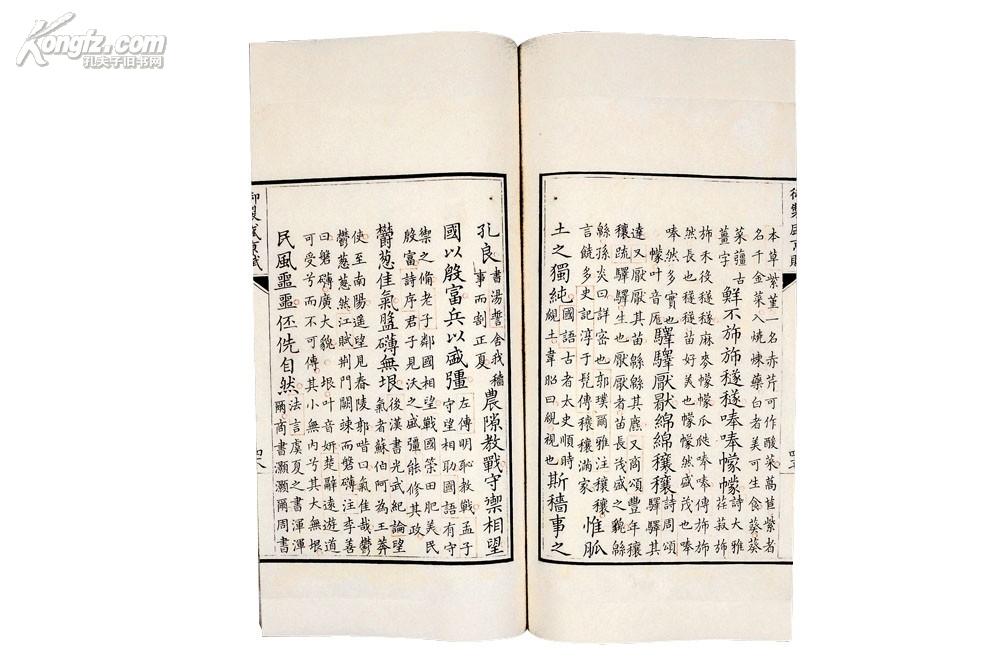 御製盛京賦
本草紫菫一名赤芹可作酸菜蒿苣紫者
名千金菜入燒煉藥白者美可生食葵
菜䕬古
薑字
鮮不斾斾穟穟唪唪幪幪
詩大雅
荏菽斾
斾禾役穟穟麻麥幪幪瓜瓞唪唪傳斾斾
然長也穟穟苗好美也幪幪然盛茂也唪
唪然多實也
幪叶音厖
驛驛厭厭綿綿穰穰
詩周頌
驛驛其
達又厭厭其苗緜緜其麃又商頌豐年穰
穰疏驛驛生也厭厭者苗長茂盛之貌緜
緜孫炎曰詳密也郭璞爾雅注穰穰
言饒多史記淳于髠傳穰穰滿家
惟脈
土之獨純
國語古者太史順時
覛土韋昭曰覛視也
斯穡事之
孔良
書湯誓舍我穡
事而割正夏
農隙教戰守禦相望
國以殷富兵以盛彊
左傳明恥教戰孟子
守望相助國語有守
禦之備老子鄰國相望戰國策田肥美民
殷富詩序君子見沃之盛彊能修其政
鬱葱佳氣盤礴無垠
後漢書光武紀論望
氣者蘇伯阿為王莽
使至南陽遥望見舂陵郭唶曰氣佳哉鬱
鬱葱葱然江賦荆門闕竦而磐礴注李善
曰磐礴廣大貌垠叶音妍楚辭遠遊道
可受兮而不可傳其小無內兮其大無垠
民風噩噩伾侁自然
法言虞夏之書渾渾
爾商書灝灝爾周書
御製盛京賦
Kongfz.com
孔夫子旧书网